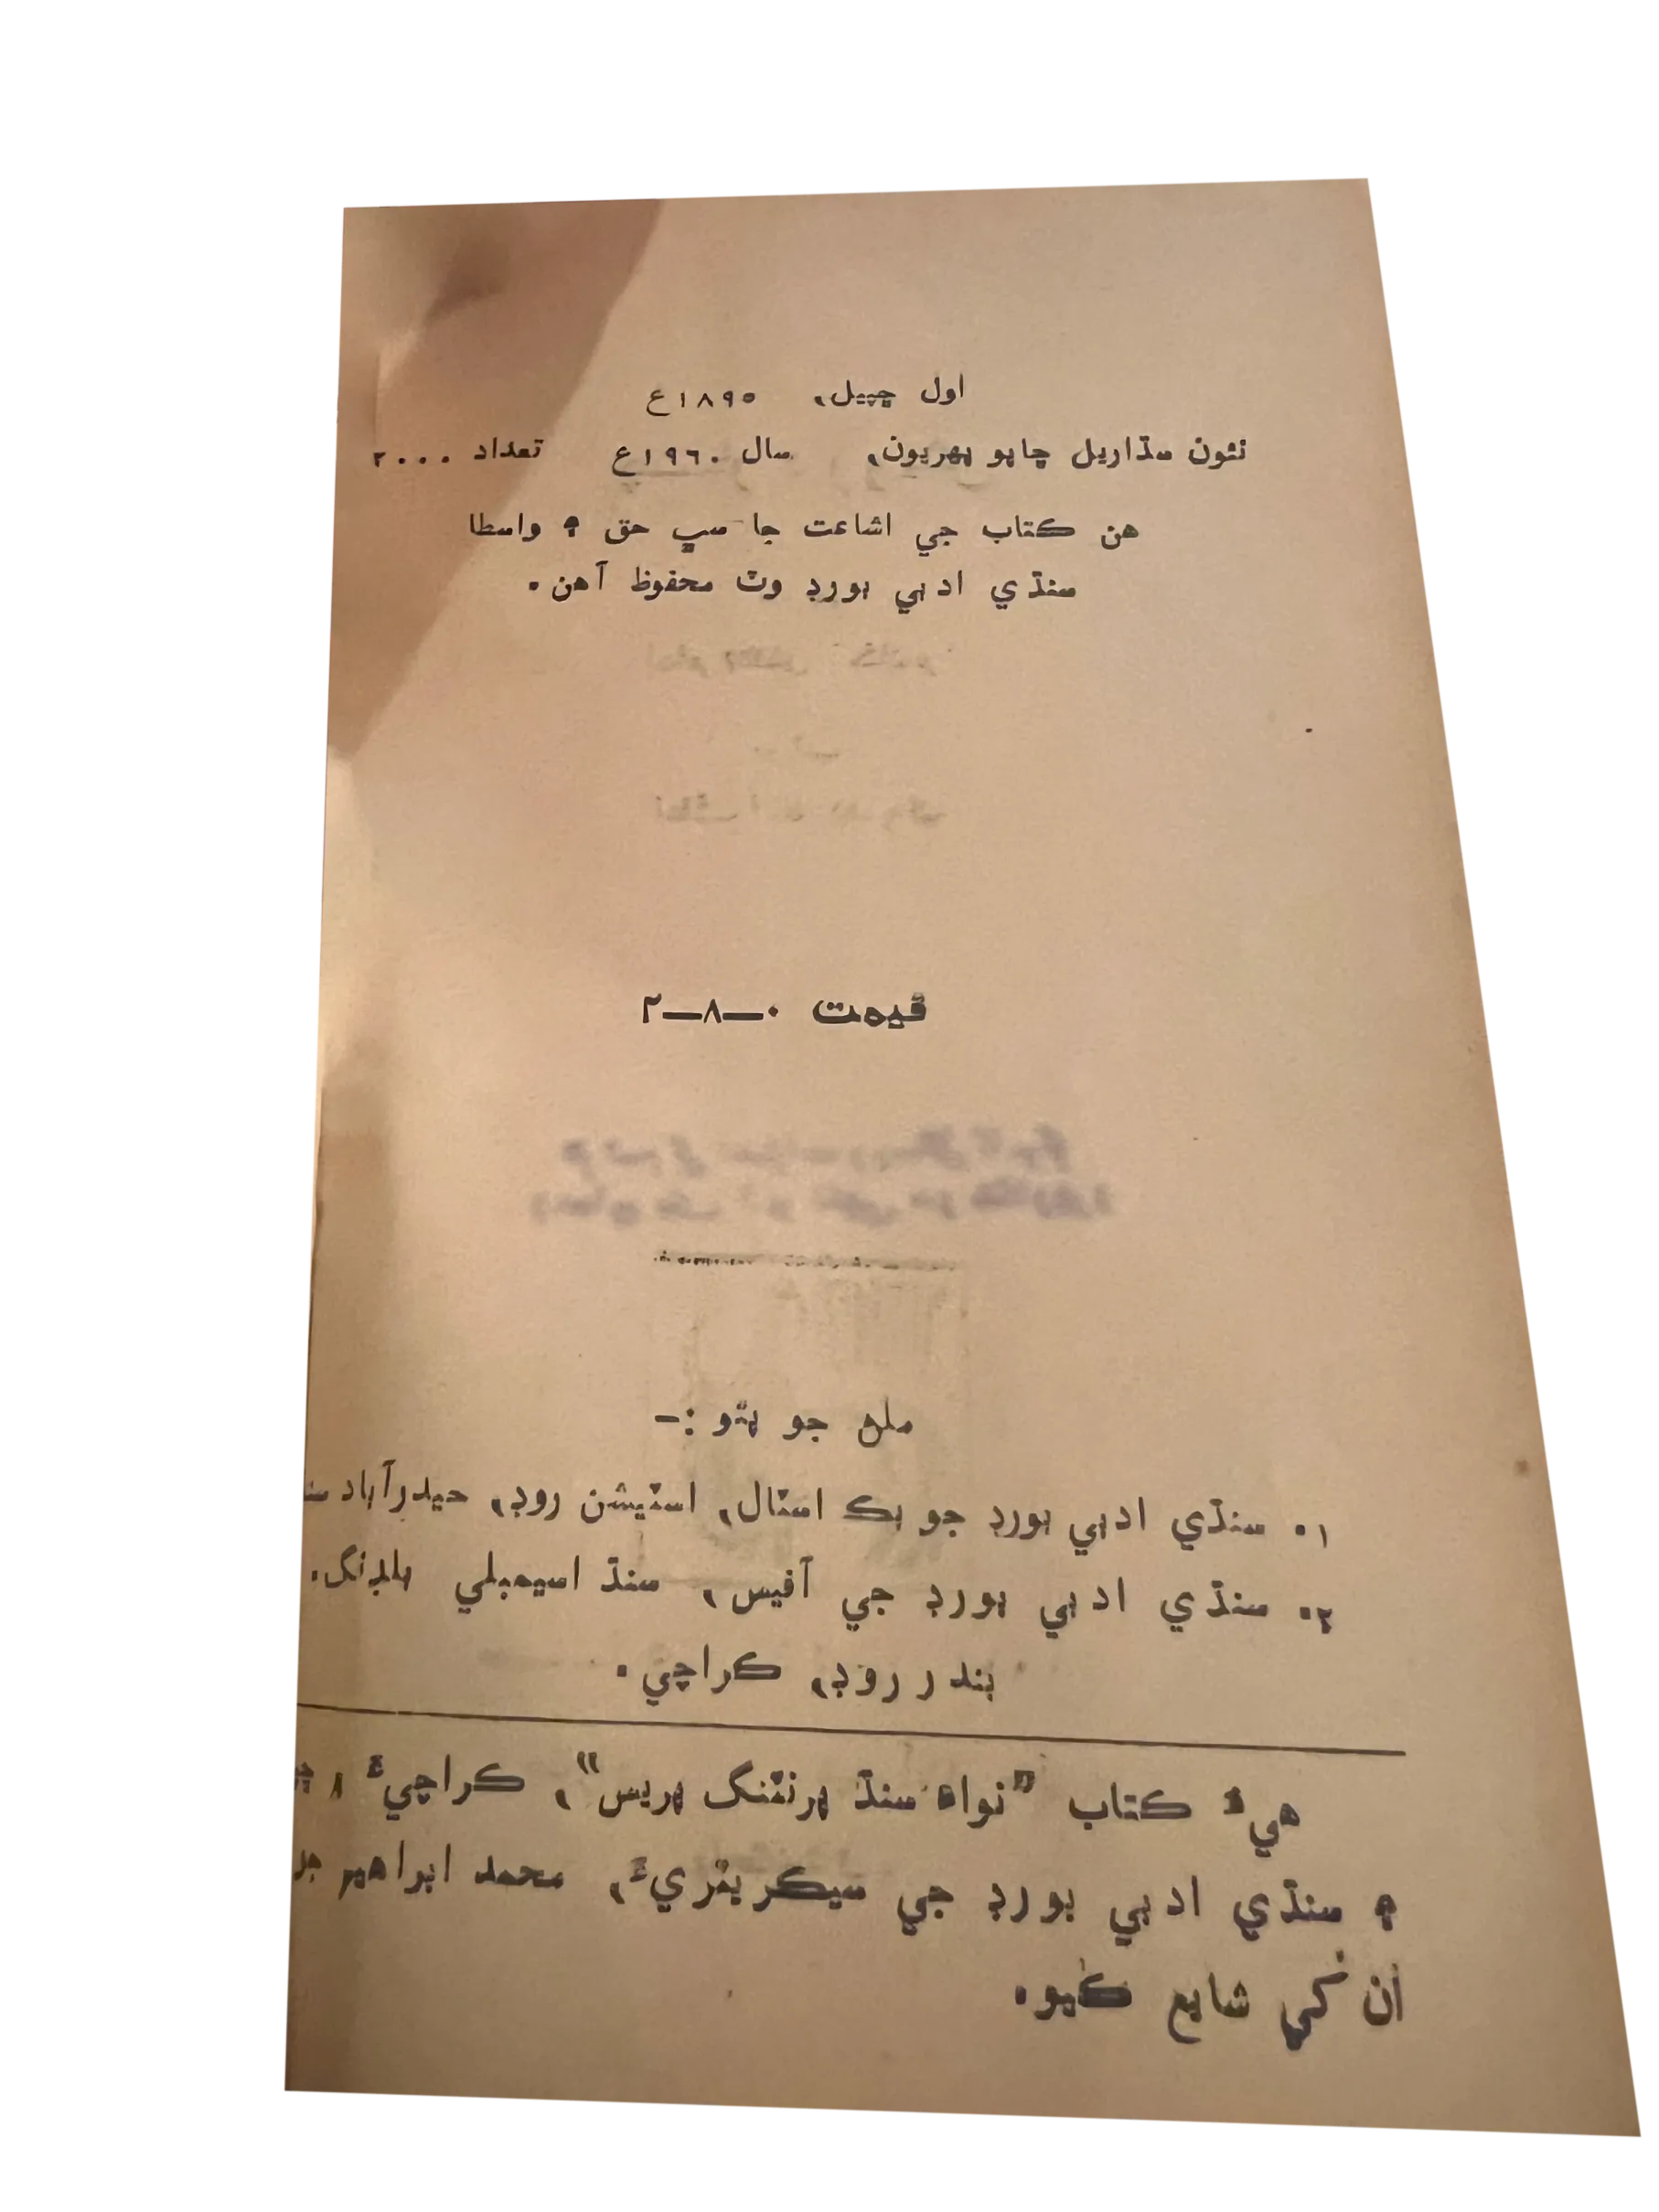 اول ڇپيل، ١٨٩٥ع
نئون سڌاريل ڇاپو پهريون، سال ١٩٦٠ع تعداد ٢٠٠٠
هن ڪتاب جي اشاعت جا سڀ حق ۽ واسطا
سنڌي ادبي بورڊ وٽ محفوظ آهن.
قيمت ٠—٨—٢
ملڻ جو پتو :—
١. سنڌي ادبي بورڊ جو بڪ اسٽال، اسٽيشن روڊ، حيدرآباد
٢. سنڌي ادبي بورڊ جي آفيس، سنڌ اسيمبلي بلڊنگ.
بندر روڊ، ڪراچي.
هيءُ ڪتاب ”نواء سنڌ پرنٽنگ پريس“، ڪراچيءَ ۾
۽ سنڌي ادبي بورڊ جي سيڪريٽريءَ، محمد ابراهيم
ان کي شايع ڪيو.